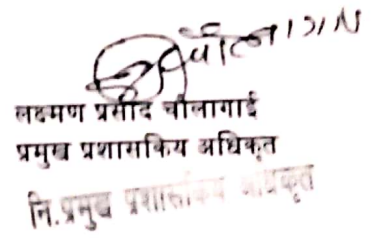 लक्ष्मण प्रसाद चौलागाई
प्रमुख प्रशासकिय अधिकृत
नि.प्रमुख प्रशासकिय अधिकृत